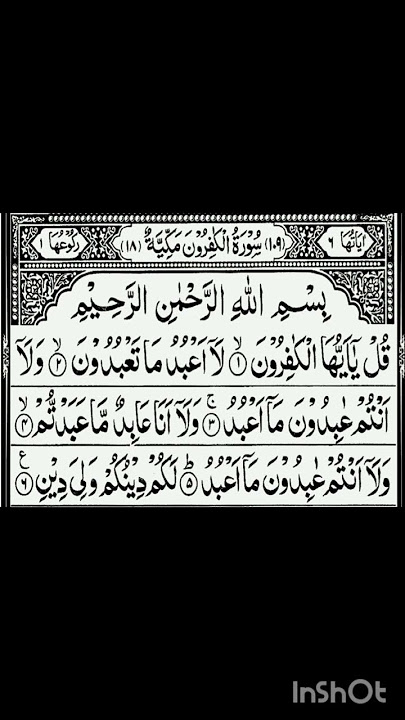 اٰيَاتُهَا ٦ (١٠٩) سُوْرَةُ الْكٰفِرُوْنَ مَكِّيَّةٌ (١٨) رُكُوْعُهَا ١
بِسْمِ اللّٰهِ الرَّحْمٰنِ الرَّحِيْمِ
قُلْ يٰۤاَيُّهَا الْكٰفِرُوْنَ ۙ‏﴿۱﴾ لَاۤ اَعْبُدُ مَا تَعْبُدُوْنَ ۙ‏﴿۲﴾ وَلَاۤ
اَنْتُمْ عٰبِدُوْنَ مَاۤ اَعْبُدُ ۚ‏﴿۳﴾ وَلَاۤ اَنَا عَابِدٌ مَّا عَبَدْتُّمْ ۙ‏﴿۴﴾
وَلَاۤ اَنْتُمْ عٰبِدُوْنَ مَاۤ اَعْبُدُ ؕ‏﴿۵﴾ لَكُمْ دِيْنُكُمْ وَلِيَ دِيْنِ ﴿۶﴾ ع
InShOt